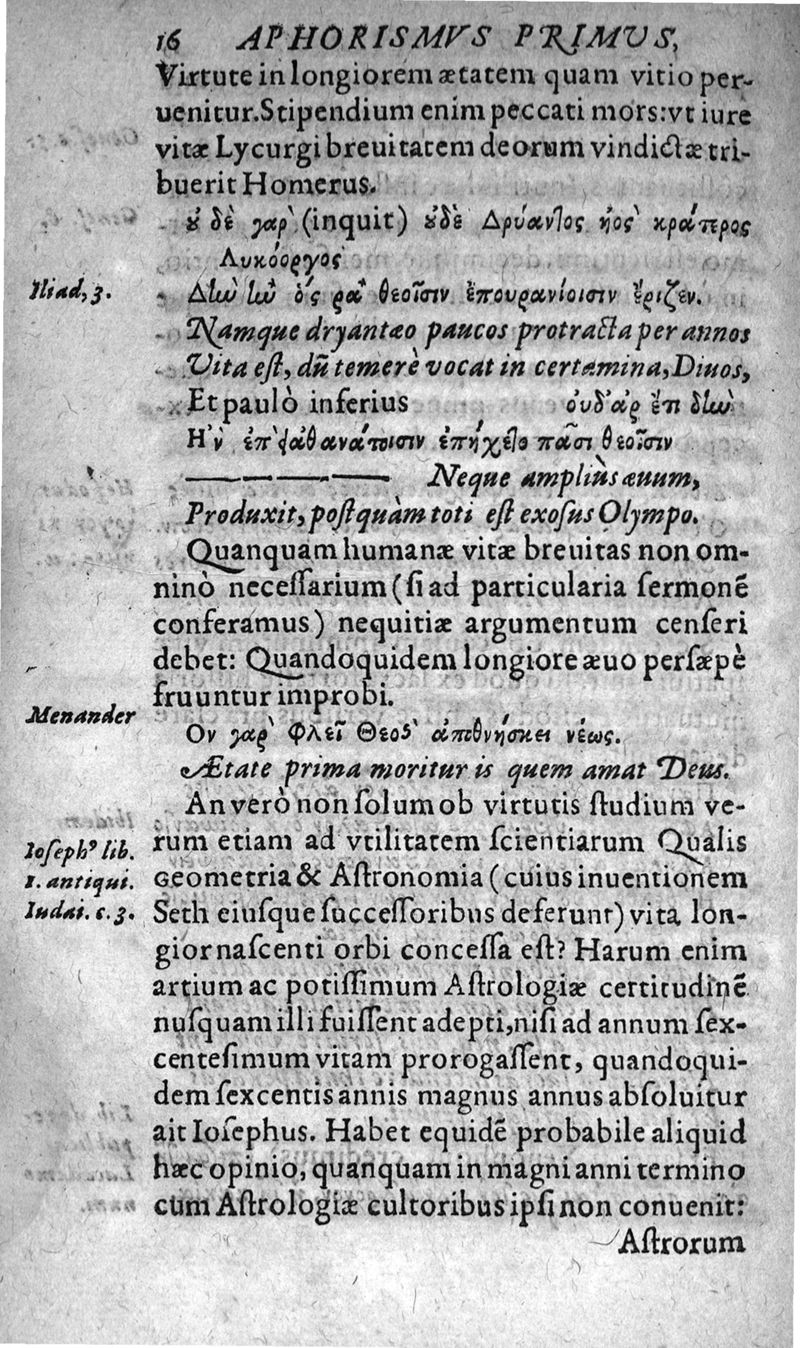 16 APHORISMVS PRIMVS,
Virtute in longiorem ætatem quam vitio per-
uenitur. Stipendium enim peccati mors: vt iure
vitæ Lycurgi breuitatem deorum vindictæ tri-
buerit Homerus.
ȣ δὲ γαρ̀ (inquit) ȣδὲ Δρύαντος ἡος̀ κράτερος
Λυκόοργος
Iliad, 3.
Δἰω ἰω ὅς ρα θεοῖσιν ἐπουρανίοισιν ἔριζεν.
Namque dryantæo paucos protracta per annos
Vita est, dũ temerè vocat in certamina, Diuos,
Et paulò inferius ουδ' ἀρ ἔπι δἰω
Ηʼν ἐπ' ἀθανάτοισιν ἐπήχετο πᾶσι θεοῖσιν
———— Neque ampliùs æuum,
Produxit, postquàm toti est exosus Olympo.
Quanquam humanæ vitæ breuitas non om-
ninò necessarium (si ad particularia sermonẽ
conferamus) nequitiæ argumentum censeri
debet: Quandoquidem longiore æuo persæpè
fruuntur improbi.
Menander
Ον γαρ̀ Φλεῖ Θεοσ̀ ἀποθνήσκει νέως.
Ætate prima moritur is quem amat Deus.
An verò non solum ob virtutis studium ve-
rum etiam ad vtilitatem scientiarum Qualis
Ioseph⁹ lib.
1. antiqui.
Iudai. c. 3.
Geometria & Astronomia (cuius inuentionem
Seth eiusque successoribus deferunt) vita lon-
gior nascenti orbi concessa est? Harum enim
artium ac potissimum Astrologiæ certitudinẽ
nusquam illi fuissent adepti, nisi ad annum sex-
centesimum vitam prorogassent, quandoqui-
dem sexcentis annis magnus annus absoluitur
ait Iosephus. Habet equidẽ probabile aliquid
hæc opinio, quanquam in magni anni termino
cum Astrologiæ cultoribus ipsi non conuenit:
Astrorum